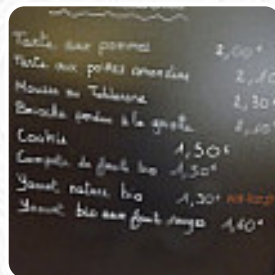 Tarte aux pommes 2,00€
Tarte aux poires amandine 2,10
Mousse au Toblerone 2,30
Brioche perdue à la 2,10
Cookie 1,50€
Compote de fruit bio 1,50€
Yaourt nature bio 1,30€
Yaourt bio aux fruit rouges 1,60€